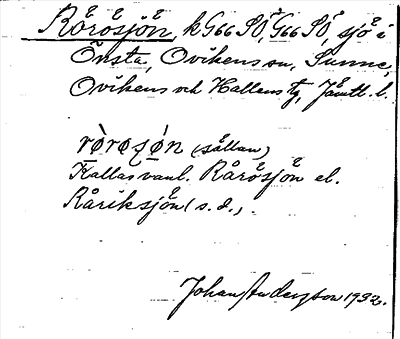 Rörösjön, k G66 SÖ, G66 SÖ, sjö i
Önsta, Ovikens sn, Sunne,
Ovikens och Hallens tg, Jämtl. l.
rò̀rǫsjǫ́n (sällan)
Kallas vanl. Rårösjön el.
Råriksjön (s. d.).
Johan Anderzson 1932.